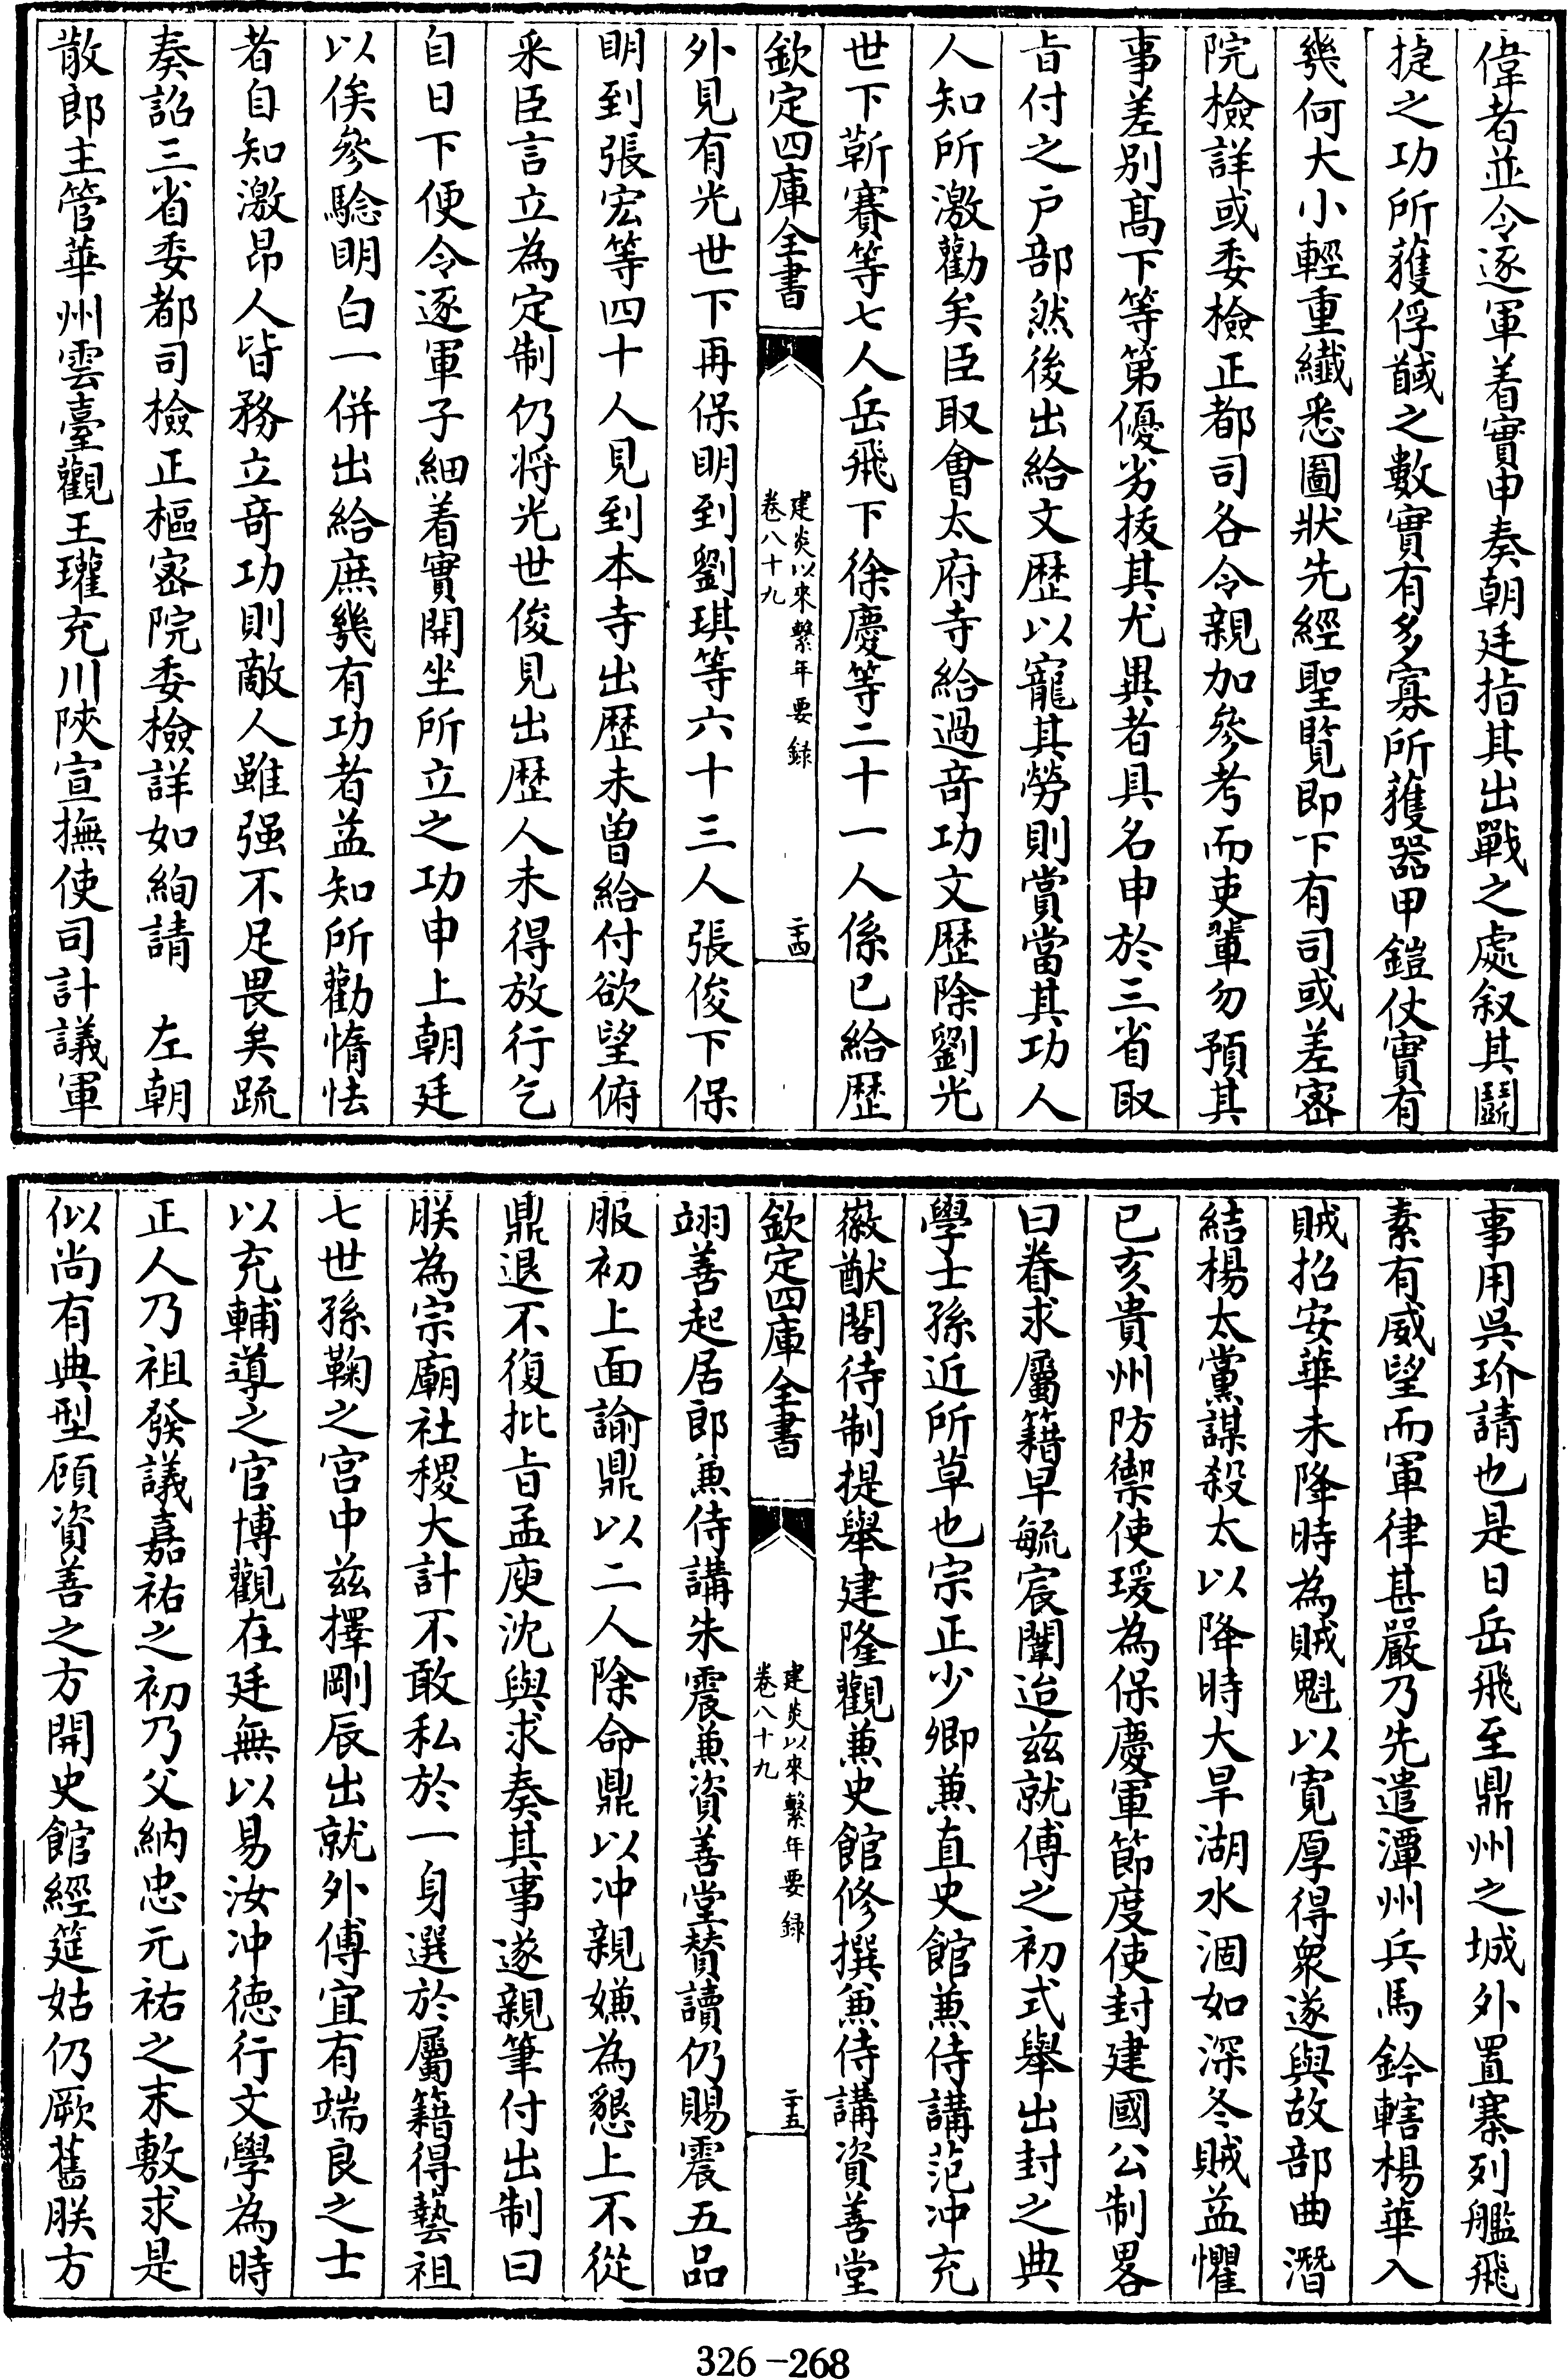 偉者並令逐軍着實申奏朝廷指其出戰之處叙其鬭
捷之功所獲俘馘之數實有多寡所獲器甲鎧仗實有
幾何大小輕重纎悉圖狀先經聖覧即下有司或差宻
院檢詳或委檢正都司各令親加參考而吏輩勿預其
事差别髙下等第優劣㧞其尤異者具名申於三省取
㫖付之户部然後出給文歴以寵其勞則賞當其功人
人知所激勸矣臣取會太府寺給過竒功文歴除劉光
世下靳賽等七人岳飛下徐慶等二十一人係已給歴
欽定四庫全書
建炎以來繫年要録
卷八十九
二十四
外見有光世下再保明到劉琪等六十三人張俊下保
明到張宏等四十人見到本寺出歴未曽給付欲望俯
采臣言立為定制仍将光世俊見出歴人未得放行乞
自日下便令逐軍子細着實開坐所立之功申上朝廷
以俟參騐明白一併出給庶幾有功者益知所勸惰怯
者自知激昂人皆務立竒功則敵人雖强不足畏矣䟽
奏詔三省委都司檢正樞宻院委檢詳如絢請　左朝
散郎主管華州雲臺觀王瓘充川陜宣撫使司計議軍
事用吳玠請也是日岳飛至鼎州之城外置寨列艦飛
素有威望而軍律甚嚴乃先遣潭州兵馬鈐轄楊華入
賊招安華未降時為賊魁以寛厚得衆遂與故部曲潛
結楊太黨謀殺太以降時大旱湖水涸如深冬賊益懼
已亥貴州防禦使瑗為保慶軍節度使封建國公制畧
曰眷求屬籍早毓宸闈迨兹就傅之初式舉出封之典
學士孫近所草也宗正少卿兼直史館兼侍講范冲充
徽猷閣待制提舉建隆觀兼史館修撰兼侍講資善堂
欽定四庫全書
建炎以來繫年要録
卷八十九
二十五
翊善起居郎兼侍講朱震兼資善堂賛讀仍賜震五品
服初上面諭鼎以二人除命鼎以冲親嫌為懇上不從
鼎退不復批㫖孟庾沈與求奏其事遂親筆付出制曰
朕為宗廟社稷大計不敢私於一身選於屬籍得藝祖
七世孫鞠之宫中兹擇剛辰出就外傅宜有端良之士
以充輔導之官博觀在廷無以易汝冲徳行文學為時
正人乃祖發議嘉祐之初乃父納忠元祐之末敷求是
似尚有典型顧資善之方開史館經筵姑仍厥舊朕方
326-268